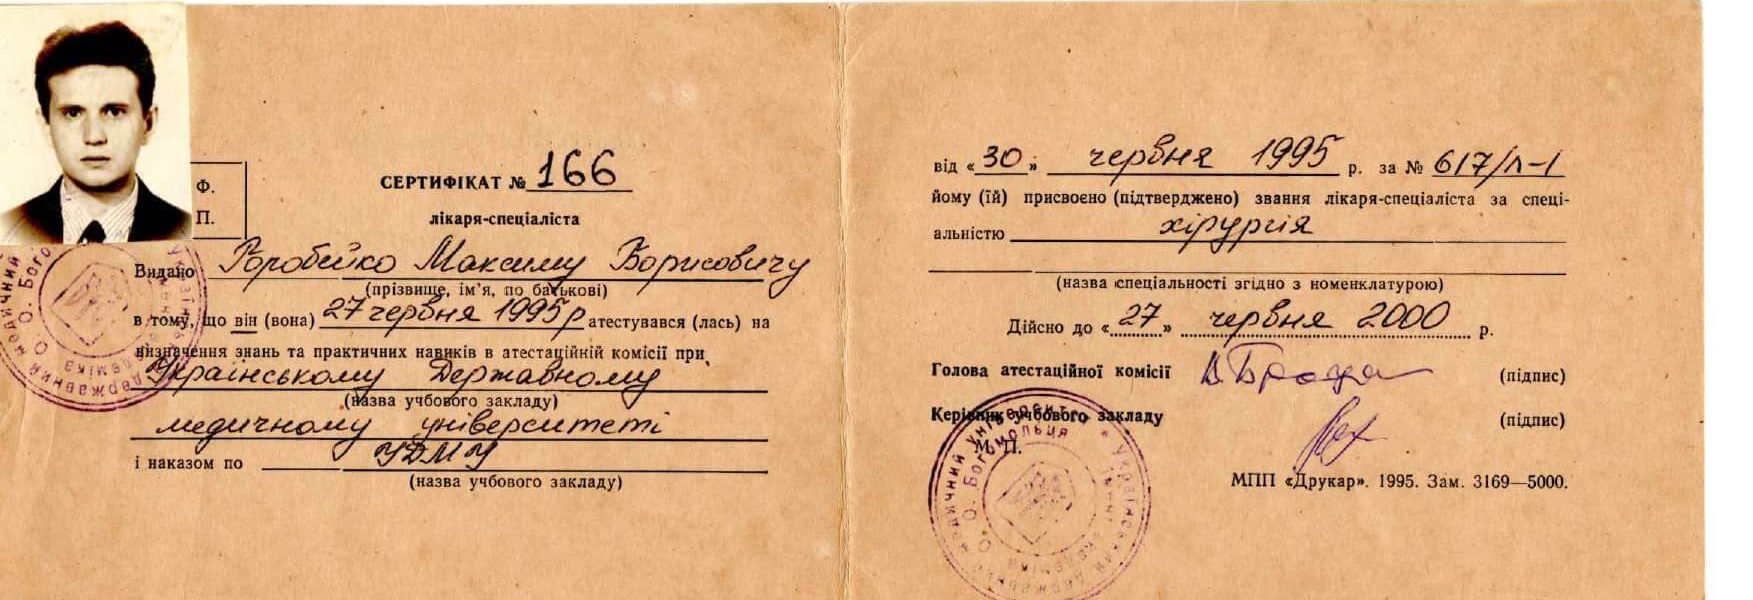 Ф.
П.
СЕРТИФІКАТ № 166
лікаря-спеціаліста
Видано Воробейко Максиму Борисовичу
(прізвище, ім'я, по батькові)
в тому, що він (вона) 27 червня 1995р атестувався (лась) на
визначення знань та практичних навиків в атестаційній комісії при
Українському Державному
(назва учбового закладу)
медичному університеті
і наказом по УДМУ
(назва учбового закладу)
від «30» червня 1995 р. за № 617/л-1
йому (їй) присвоєно (підтверджено) звання лікаря-спеціаліста за спеці-
альністю хірургія
(назва спеціальності згідно з номенклатурою)
Дійсно до «27» червня 2000 р.
Голова атестаційної комісії (підпис)
Керівник учбового закладу (підпис)
М. П.
МПП «Друкар». 1995. Зам. 3169—5000.